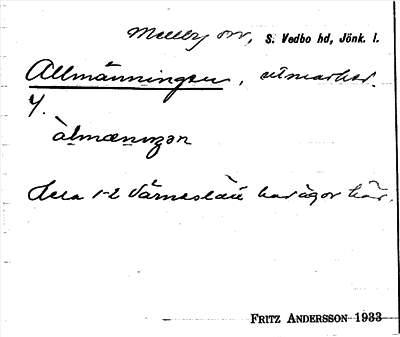 Melby sn, S. Vedbo hd, Jönk. l.
Allmänningen, utmarker.
4.
àlmænıŋən
Lera 1-2 Värneslätt har ägor här.
FRITZ ANDERSSON 1933